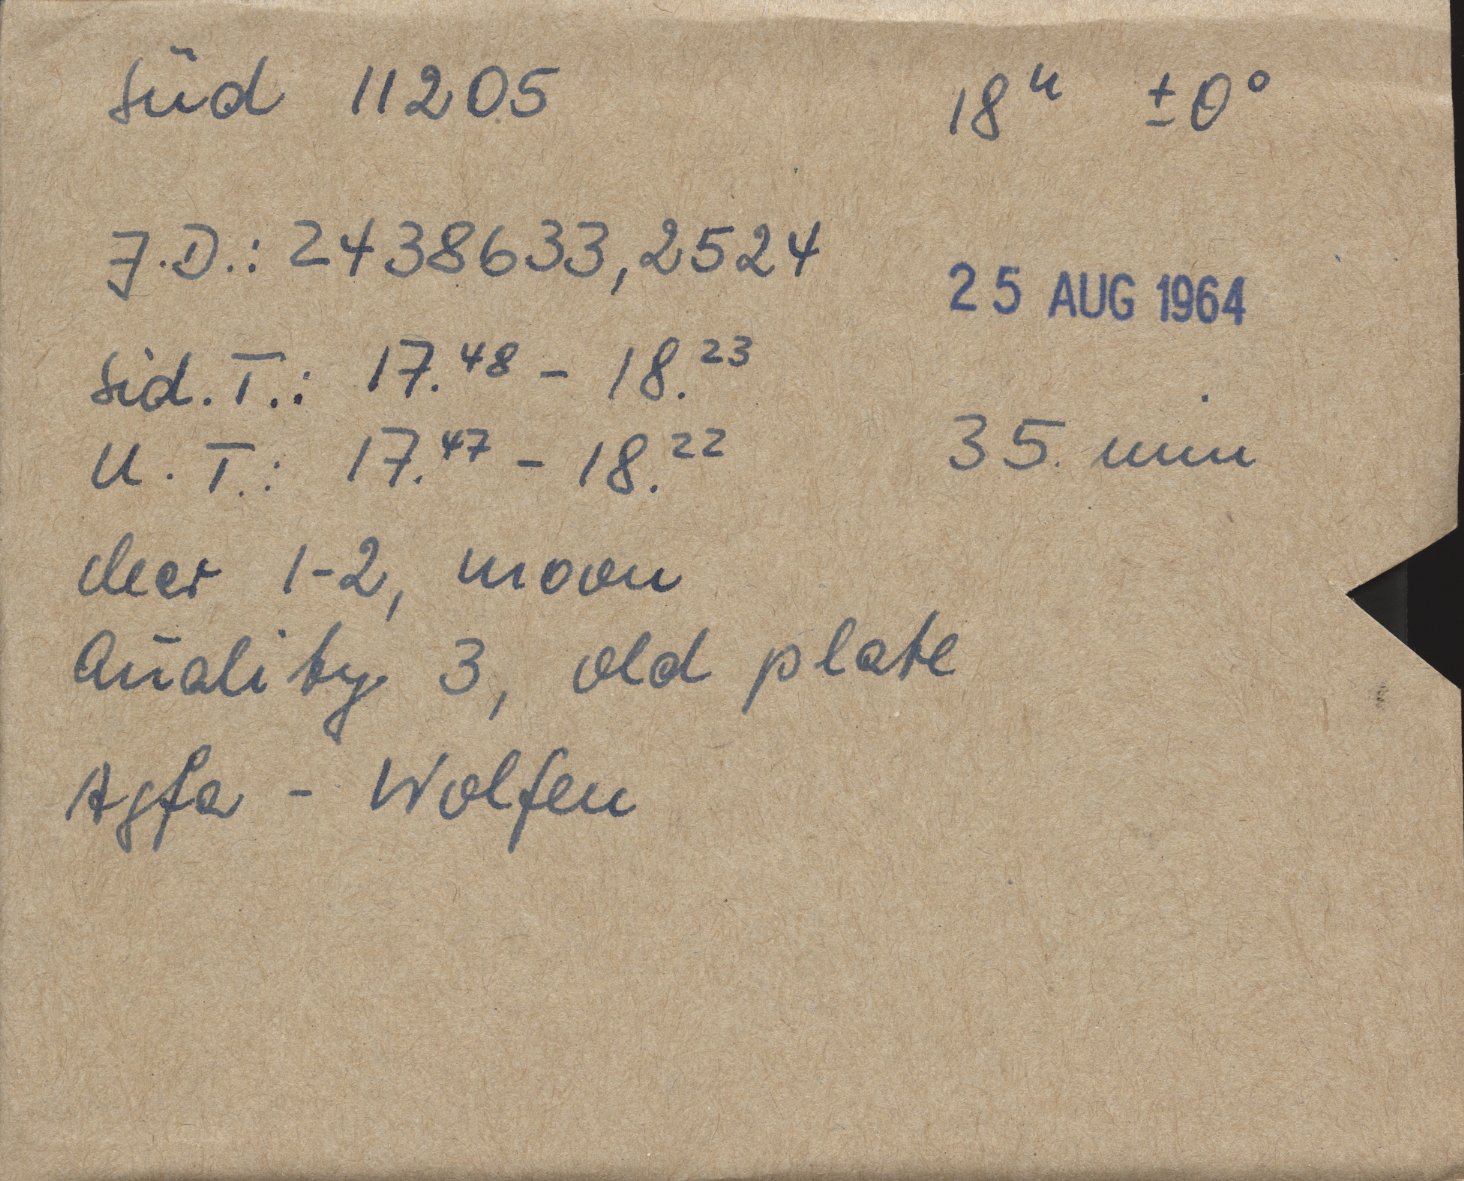 Süd 11205 18ʰ ±0°
J.D.: 2438633,2524
25 AUG 1964
Sid. T.: 17.⁴⁸ – 18.²³
U. T.: 17.⁴⁷ – 18.²² 35 min
clear 1-2, moon
Quality 3, old plate
Agfa - Wolfen